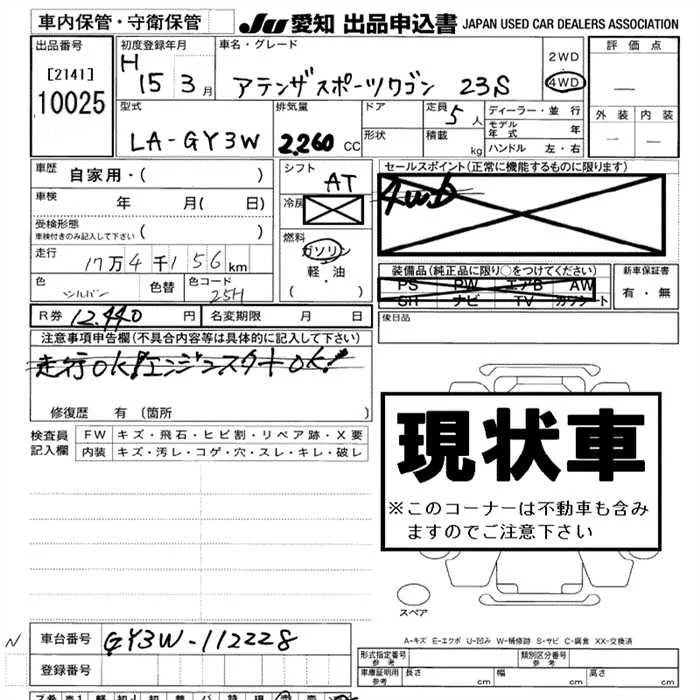 車内保管・守衛保管 JU 愛知 出品申込書 JAPAN USED CAR DEALERS ASSOCIATION
出品番号 初度登録年月 車名・グレード 評価点
[2141] H 15 3月 アテンザスポーツワゴン 23S 2WD
10025 4WD
型式 排気量 ドア 定員 5人 ディーラー・並行 外装 内装
LA-GY3W 2.260 CC 形状 積載 kg モデル年式 年
ハンドル 左・右
車歴 自家用・( ) シフト AT セールスポイント(正常に機能するものに限ります)
車検 年 月( 日) 冷房 4W.D
受検形態 車検付きのみ記入して下さい ( ) 燃料
走行 17万4千156km ガソリン 装備品(純正品に限り○をつけてください) 新車保証書
色 シルバー 色替 色コード 25H 軽・油 PS PW エアB AW 有・無
( ) SH ナビ TV カワシート
R券 12.440円 名変期限 月 日 後日品
注意事項申告欄(不具合内容等は具体的に記入して下さい)
走行OK!エンジンスタートOK!
修復歴 有 (箇所 )
現状車
※このコーナーは不動車も含み
ますのでご注意下さい
検査員 FW キズ・飛石・ヒビ割・リペア跡・X要
記入欄 内装 キズ・汚レ・コゲ・穴・スレ・キレ・破レ
スペア
A-キズ E-エクボ U-凹み W-補修跡 S-サビ C-腐食 XX-交換済
N 車台番号 GY3W-112228
登録番号
形式指定番号 参考 類別区分番号 参考
車庫証明用 参考 長さ cm 幅 cm 高さ cm